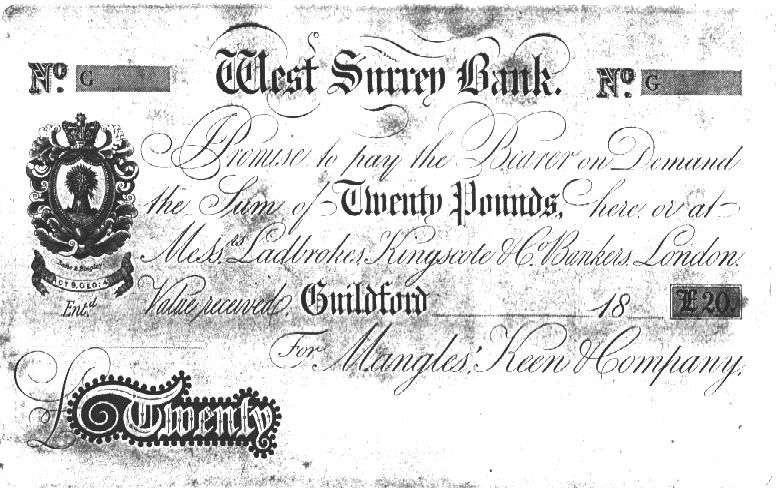 No. G West Surrey Bank. No. G
I Promise to pay the Bearer on Demand
the Sum of Twenty Pounds, here or at
Messrs Ladbrokes, Kingscote & Co. Bankers, London.
ACT 9. GEO: 4
Entd. Value received, Guildford 18 £20.
For Mangles', Keen & Company.
£ Twenty